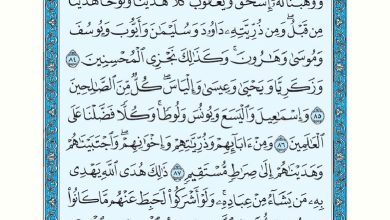 وَوَهَبْنَا لَهُۥٓ إِسْحَٰقَ وَيَعْقُوبَ كُلًّا هَدَيْنَا وَنُوحًا هَدَيْنَا
مِن قَبْلُ وَمِن ذُرِّيَّتِهِۦ دَاوُۥدَ وَسُلَيْمَٰنَ وَأَيُّوبَ وَيُوسُفَ
وَمُوسَىٰ وَهَٰرُونَ وَكَذَٰلِكَ نَجْزِى ٱلْمُحْسِنِينَ ٨٤
وَزَكَرِيَّا وَيَحْيَىٰ وَعِيسَىٰ وَإِلْيَاسَ كُلٌّ مِّنَ ٱلصَّٰلِحِينَ
٨٥ وَإِسْمَٰعِيلَ وَٱلْيَسَعَ وَيُونُسَ وَلُوطًا وَكُلًّا فَضَّلْنَا عَلَى
ٱلْعَٰلَمِينَ ٨٦ وَمِنْ ءَابَآئِهِمْ وَذُرِّيَّٰتِهِمْ وَإِخْوَٰنِهِمْ وَٱجْتَبَيْنَٰهُمْ
وَهَدَيْنَٰهُمْ إِلَىٰ صِرَٰطٍ مُّسْتَقِيمٍ ٨٧ ذَٰلِكَ هُدَى ٱللَّهِ يَهْدِى
بِهِۦ مَن يَشَآءُ مِنْ عِبَادِهِۦ وَلَوْ أَشْرَكُوا۟ لَحَبِطَ عَنْهُم مَّا كَانُوا۟